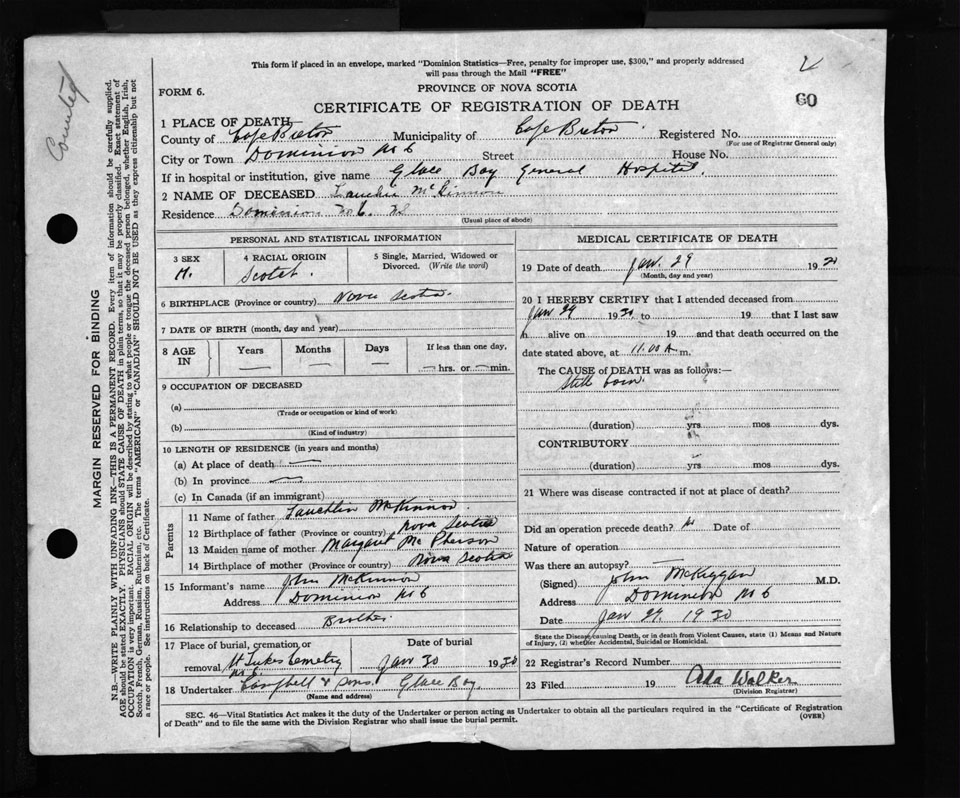 Counted
This form if placed in an envelope, marked "Dominion Statistics—Free, penalty for improper use, $300," and properly addressed
will pass through the Mail "FREE"
FORM 6.
PROVINCE OF NOVA SCOTIA
60
CERTIFICATE OF REGISTRATION OF DEATH
1 PLACE OF DEATH,
County of Cape Breton Municipality of Cape Breton Registered No.
(For use of Registrar General only)
City or Town Dominion No 6 Street House No.
If in hospital or institution, give name Glace Bay General Hospital.
2 NAME OF DECEASED Lauchlin McKinnon
Residence Dominion No 6.
(Usual place of abode)
PERSONAL AND STATISTICAL INFORMATION
3 SEX 4 RACIAL ORIGIN 5 Single, Married, Widowed or
Divorced. (Write the word)
M. Scotch.
6 BIRTHPLACE (Province or country) Nova Scotia.
7 DATE OF BIRTH (month, day and year)
8 AGE IN Years Months Days If less than one day,
— — — — hrs. or — min.
9 OCCUPATION OF DECEASED
(a)
(Trade or occupation or kind of work)
(b)
(Kind of industry)
10 LENGTH OF RESIDENCE (in years and months)
(a) At place of death —
(b) In province —
(c) In Canada (if an immigrant)
Parents
11 Name of father Lauchlin McKinnon.
12 Birthplace of father (Province or country) Nova Scotia
13 Maiden name of mother Margaret McPherson
14 Birthplace of mother (Province or country) Nova Scotia
15 Informant's name John McKinnon
Address Dominion No 6
16 Relationship to deceased Brother.
17 Place of burial, cremation, or Date of burial
removal St Lukes Cemetry Jan 30 1930
18 Undertaker Campbell & Sons. Glace Bay.
(Name and address)
MEDICAL CERTIFICATE OF DEATH
19 Date of death Jan. 29 1930
(Month, day and year)
20 I HEREBY CERTIFY that I attended deceased from
Jan 29 1930 to 19 that I last saw
h alive on 19 and that death occurred on the
date stated above, at 11.00 A m.
The CAUSE of DEATH was as follows:—
Still born.
(duration) yrs mos dys.
CONTRIBUTORY
(duration) yrs mos dys.
21 Where was disease contracted if not at place of death?
Did an operation precede death? Date of
Nature of operation
Was there an autopsy?
(Signed) John McKiggan M.D.
Address Dominion No 6
Date Jan 29. 1930
State the Disease causing Death, or in death from Violent Causes, state (1) Means and Nature
of Injury, (2) whether Accidental, Suicidal or Homicidal.
22 Registrar's Record Number
23 Filed 19 Ada Walker
(Division Registrar)
SEC. 46—Vital Statistics Act makes it the duty of the Undertaker or person acting as Undertaker to obtain all the particulars required in the "Certificate of Registration
of Death" and to file the same with the Division Registrar who shall issue the burial permit. (OVER)
MARGIN RESERVED FOR BINDING
N.B.—WRITE PLAINLY WITH UNFADING INK—THIS IS A PERMANENT RECORD. Every item of information should be carefully supplied.
AGE should be stated EXACTLY. PHYSICIANS should STATE CAUSE OF DEATH in plain terms, so that it may be properly classified. Exact statement of
OCCUPATION is very important. RACIAL ORIGIN will be described by stating to what people or tongue the deceased person belonged, whether English, Irish,
Scotch, French, German, Russian, Ruthenian, etc. The terms "AMERICAN" or "CANADIAN" SHOULD NOT BE USED as they express citizenship but not
a race or people. See instructions on back of Certificate.